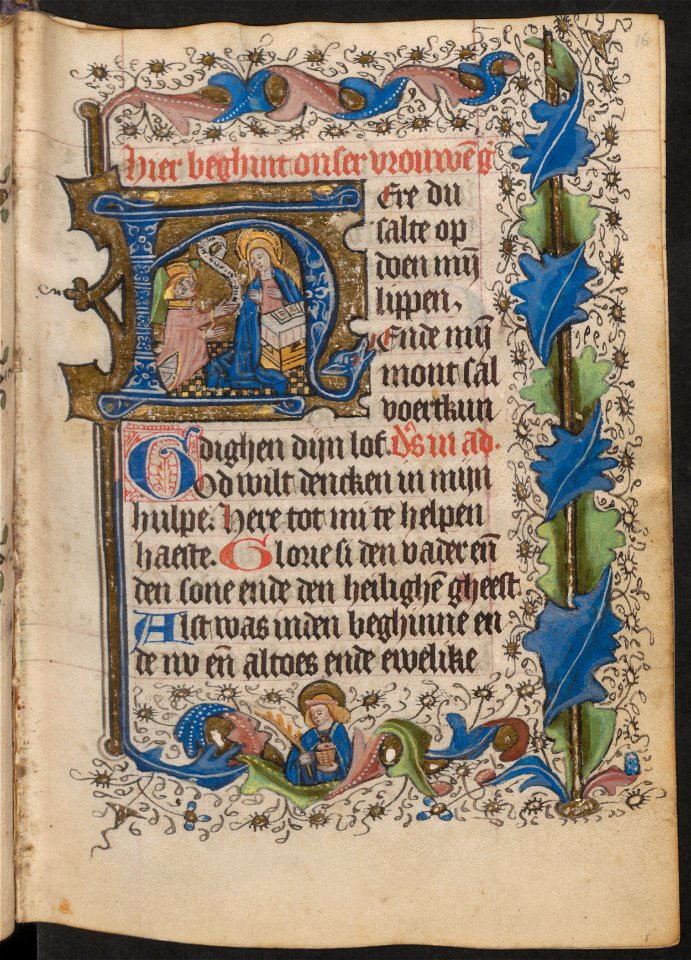 16
Hier beghint onser vrouwē g̾
HEre du
salte op
doen mijn
lippen.
Ende mijn
mont sal
voertkun
dighen dijn lof. Ds̾ in ad.
God wilt dencken in mijn
hulpe. Here tot mi te helpen
haeste. Glorie si den vader eñ
den sone ende den heilighē gheest.
Alst was inden beghinne en
de nv eñ altoes ende ewelike